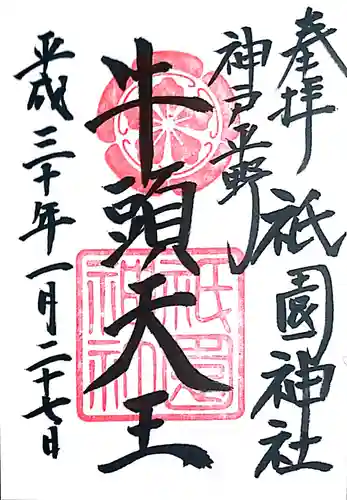 奉拝
祇園神社
神戸平野
牛頭天王
祇園
神社
平成三十年一月二十七日